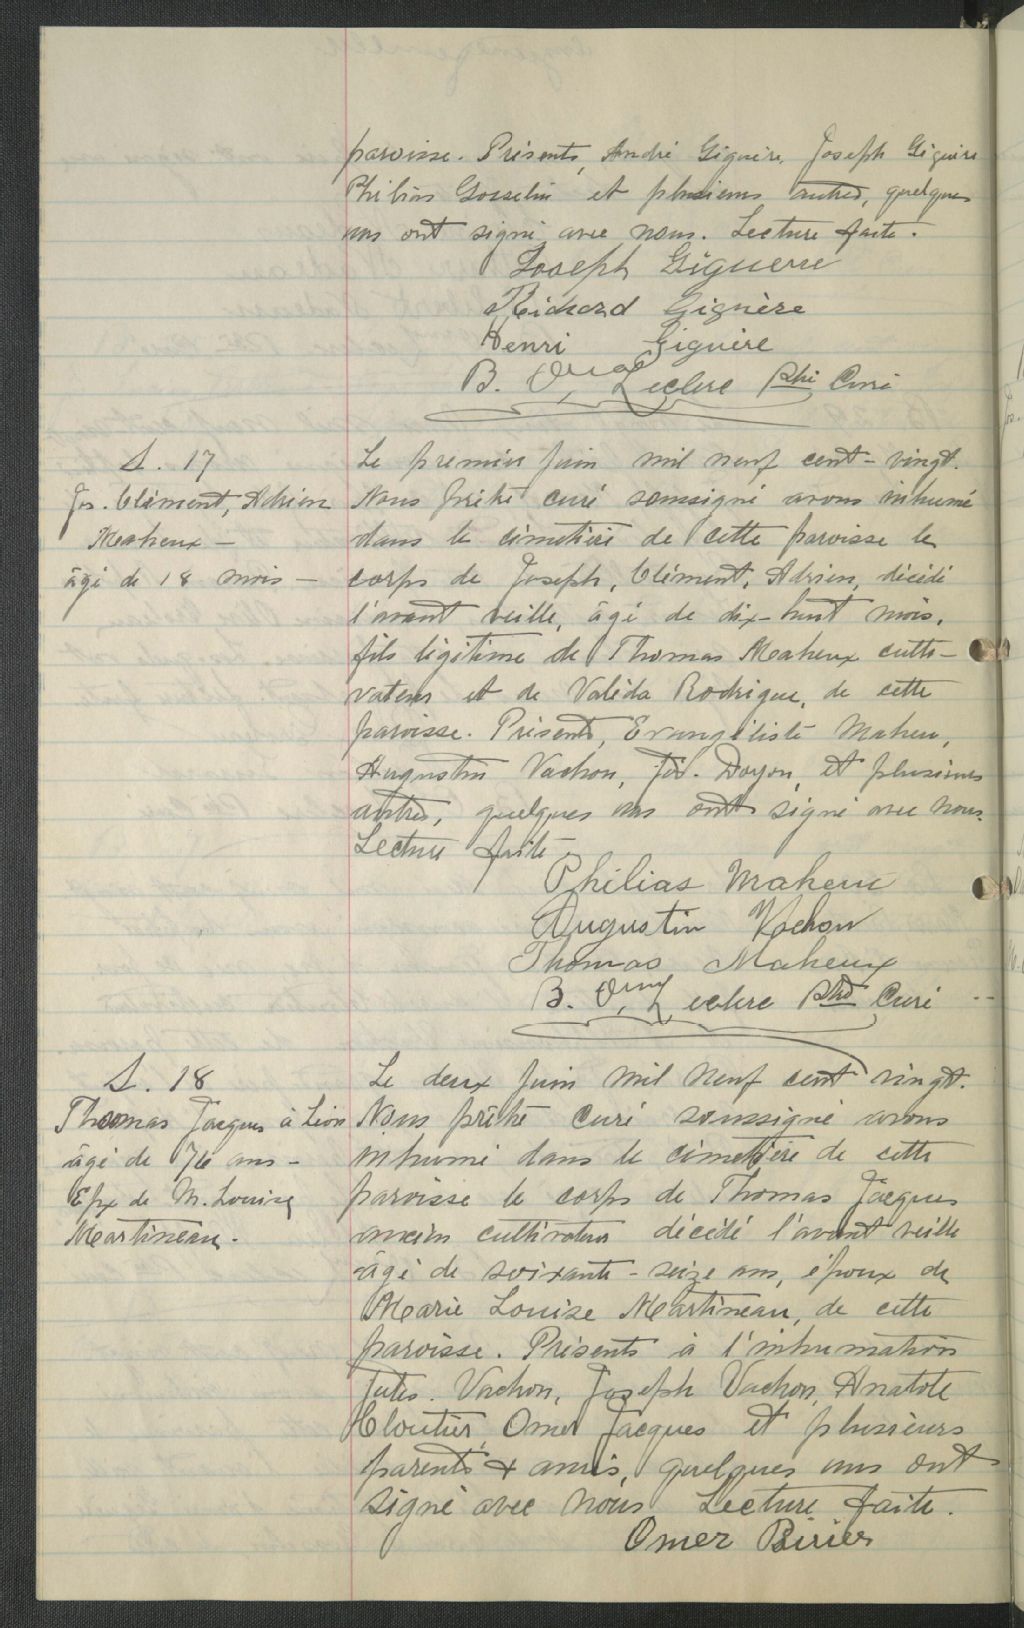 paroisse. Présents, André Giguère, Joseph Giguère
Philias Gosselin et plusieurs autres, quelques
uns ont signé avec nous. Lecture faite.
Joseph Giguerre
Richard Giguère
Henri Giguère
B. Leclerc Ptre Curé
S. 17
Jos. Clément, Adrien
Maheux -
âgé de 18 mois -
Le premier Juin mil neuf cent-vingt.
Nous prêtre curé soussigné avons inhumé
dans le cimetière de cette paroisse le
corps de Joseph, Clément, Adrien, décédé
l'avant veille, âgé de dix-huit mois,
fils légitime de Thomas Maheux culti-
vateur et de Valéda Rodrigue, de cette
paroisse. Présents, Evangéliste Maheu,
Augustin Vachon, Jos. Doyon, et plusieurs
autres, quelques uns ont signé avec nous.
Lecture faite.
Philias Maheux
Augustin Vachon
Thomas Maheux
B. Leclerc Ptre Curé
S. 18
Thomas Jacques à Léon
âgé de 76 ans -
Epx de M. Louise
Martineau.
Le deux Juin mil neuf cent vingt.
Nous prêtre curé soussigné avons
inhumé dans le cimetière de cette
paroisse le corps de Thomas Jacques
ancien cultivateur décédé l'avant veille
âgé de soixante-seize ans, époux de
Marie Louise Martineau, de cette
paroisse. Présents à l'inhumation
Jules Vachon, Joseph Vachon, Anatole
Cloutier, Omer Jacques et plusieurs
parents & amis, quelques uns ont
signé avec nous. Lecture faite.
Omer